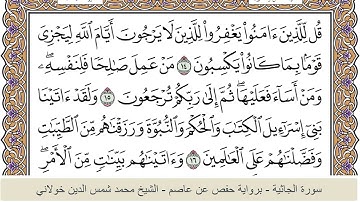 قُل لِّلَّذِينَ ءَامَنُوا۟ يَغْفِرُوا۟ لِلَّذِينَ لَا يَرْجُونَ أَيَّامَ ٱللَّهِ لِيَجْزِىَ
قَوْمًۢا بِمَا كَانُوا۟ يَكْسِبُونَ ١٤ مَنْ عَمِلَ صَٰلِحًا فَلِنَفْسِهِۦ ۖ
وَمَنْ أَسَآءَ فَعَلَيْهَا ۖ ثُمَّ إِلَىٰ رَبِّكُمْ تُرْجَعُونَ ١٥ وَلَقَدْ ءَاتَيْنَا
بَنِىٓ إِسْرَٰٓءِيلَ ٱلْكِتَٰبَ وَٱلْحُكْمَ وَٱلنُّبُوَّةَ وَرَزَقْنَٰهُم مِّنَ ٱلطَّيِّبَٰتِ
وَفَضَّلْنَٰهُمْ عَلَى ٱلْعَٰلَمِينَ ١٦ وَءَاتَيْنَٰهُم بَيِّنَٰتٍ مِّنَ ٱلْأَمْرِ ۖ
سورة الجاثية - برواية حفص عن عاصم - الشيخ محمد شمس الدين خولاني